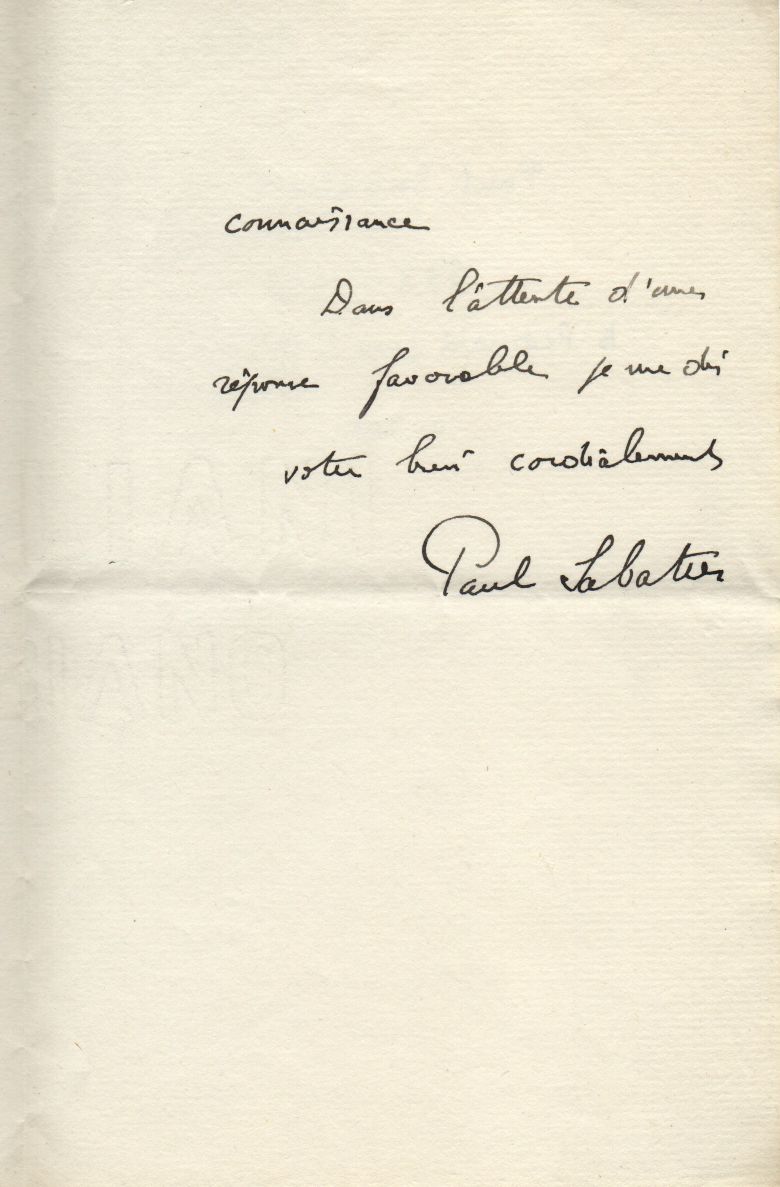 connaissance
Dans l'attente d'une
réponse favorable je me dis
votre bien cordialement
Paul Sabatier